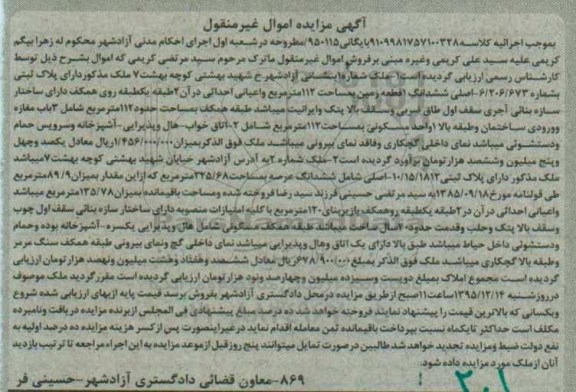 آگهی مزایده اموال غیرمنقول
بموجب اجرائیه کلاسه ۹۱۰۹۹۸۱۷۵۷۱۰۰۳۲۸ بایگانی ۹۵۰۱۱۵/ مطروحه در شعبه اول اجرای احکام مدنی آزادشهر محکوم له زهرا بیگم
کریمی علیه سید علی کریمی وغیره مبنی بر فروش اموال غیرمنقول ماترک مرحوم سید مرتضی کریمی که اموال بشرح ذیل توسط
کارشناس رسمی ارزیابی گردیده است ۱-ملک شماره ۱ بنشانی آزادشهر خ شهید بهشتی کوچه بهشت ۷ ملک مذکور دارای پلاک ثبتی
بشماره ۶/۲۰۶/۶۷۳-اصلی ششدانگ ۱ قطعه زمین بمساحت ۱۱۲ مترمربع واعیانی احداثی در آن ۲ طبقه یکطبقه روی همکف دارای ساختار
سازه بنائی آجری سقف اول طاق ضربی وسقف بالا پتک وایرانیت میباشد طبقه همکف بمساحت حدود ۱۱۲ مترمربع شامل ۳ باب مغازه
وورودی ساختمان وطبقه بالا ۱ واحد مسکونی بمساحت ۱۱۲ مترمربع شامل ۲-اتاق خواب-هال وپذیرایی-آشپزخانه وسرویس حمام
ودستشوئی میباشد نمای داخلی گچکاری وفاقد نمای بیرونی میباشد ملک فوق الذکر بمیزان ۱/۴۵۶/۰۰۰/۰۰۰ ریال معادل یکصد وچهل
وپنج میلیون وششصد هزار تومان برآورد گردیده است ۲-ملک شماره ۲ به آدرس آزادشهر خیابان شهید بهشتی کوچه بهشت ۷ میباشد
ملک مذکور دارای پلاک ثبتی ۱۰/۱۵/۱۸۱۲-اصلی شامل ششدانگ عرصه بمساحت ۲۲۵/۶۸ مترمربع که از این مقدار بمیزان ۸۹/۹ مترمربع
طی قولنامه مورخ ۱۳۸۵/۰۹/۱۸ به سید مرتضی حسینی فرزند سید رضا فروخته شده ومساحت باقیمانده بمیزان ۱۳۵/۷۸ مترمربع میباشد
واعیانی احداثی در آن در ۲ طبقه یکطبقه روهمکف بازیربنای ۱۲۰ مترمربع با کلیه امتیازات منصوبه دارای ساختار سازه بنائی سقف اول چوب
وسقف بالا پتک وحلب وقدمت حدود ۲۰ سال ساخت میباشد طبقه همکف مسکونی شامل هال وپذیرایی یکسره-آشپزخانه بوده وحمام
ودستشوئی داخل حیاط میباشد طبق بالا دارای یک اتاق وهال وپذیرایی میباشد نمای داخلی گچ ونمای بیرونی طبقه همکف سنگ مرمر
وطبقه بالا گچکاری میباشد ملک فوق الذکر بمبلغ ۶۷۸/۹۰۰/۰۰۰ ریال معادل ششصد وهفتاد وهشت میلیون ونهصد هزار تومان ارزیابی
گردیده است مجموع املاک بمبلغ دویست وسیزده میلیون وچهارصد ونود هزار تومان ارزیابی گردیده است مقرر گردید ملک موصوف
در روز شنبه ۱۳۹۵/۱۲/۱۴ ساعت ۱۱ صبح از طریق مزایده در محل دادگستری آزادشهر بفروش برسد قیمت پایه از بهای ارزیابی شده شروع
وبکسانی که بالاترین قیمت را پیشنهاد نمایند فروخته خواهد شد ده درصد مبلغ پیشنهادی فی المجلس از برنده مزایده دریافت ونامبرده
مکلف است حداکثر تا یکماه نسبت بپرداخت باقیمانده ثمن معامله اقدام نماید در غیر اینصورت پس از کسر هزینه مزایده ده درصد اولیه به
نفع دولت ضبط ومزایده تجدید خواهد شد طالبین در صورت تمایل میتوانند پنج روز قبل از موعد مزایده به این اجراء مراجعه تا ترتیب بازدید
آنان از ملک مورد مزایده داده شود.
۸۶۹-معاون قضائی دادگستری آزادشهر-حسینی فر